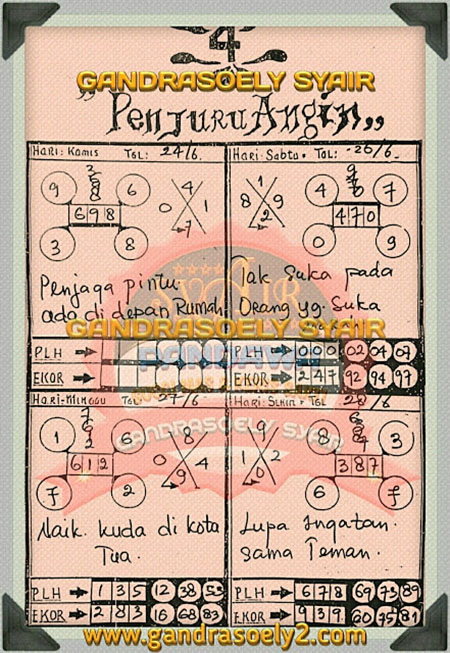 4
GANDRASOELY SYAIR
"Penjuru Angin"
Hari: Kamis TGL: 24/6
9 6
698
3 8
4
0 1
7
Penjaga pintu
ada di depan Rumah
PLH
EKOR
Hari: Sabtu TGL: -26/6-
4 7
470
0 9
1
8 9
2
Tak Suka pada
Orang yg. Suka
GANDRASOELY SYAIR
PLH 0 0 0 02 04 07
EKOR 2 4 7 92 94 97
Hari-Minggu TGL: 27/6
1 6
612
7 2
8
0 4
9
Naik kuda di kota
Tua.
PLH 1 3 5 12 38 53
EKOR 2 8 3 16 68 83
Hari: Senin TGL 28/6
8 3
387
6 7
9
1 0
2
Lupa Ingatan.
Sama Teman.
PLH 6 7 8 69 73 89
EKOR 9 3 9 60 75 81
GANDRASOELY SYAIR
www.gandrasoely2.com